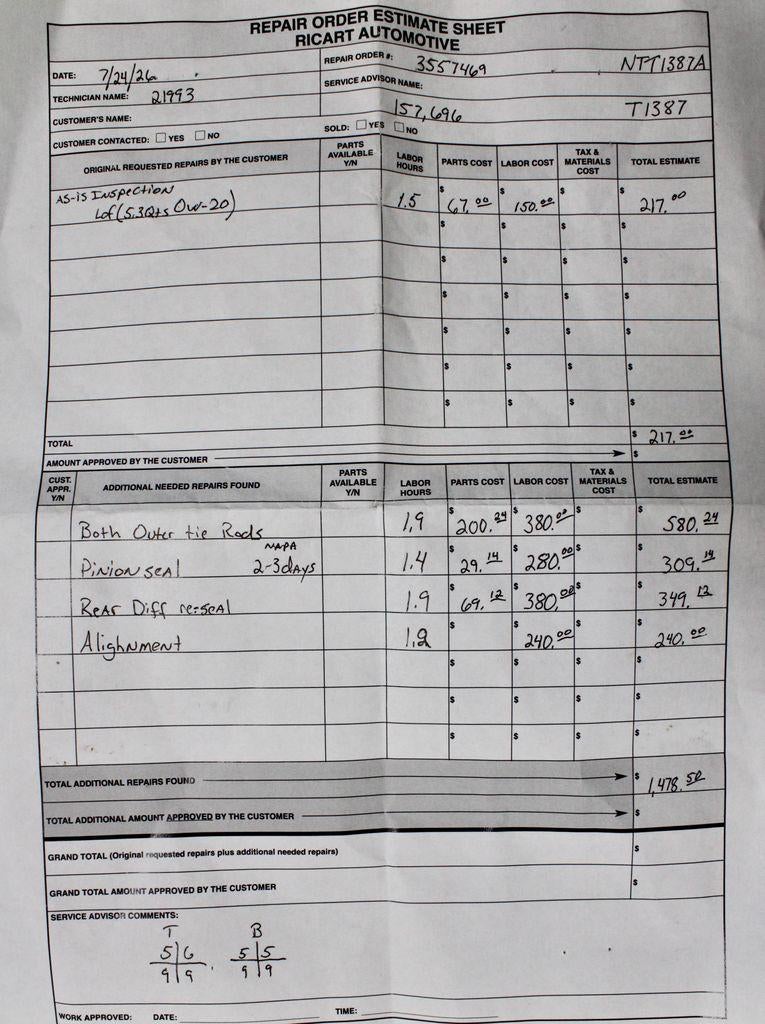 REPAIR ORDER ESTIMATE SHEET
RICART AUTOMOTIVE
DATE: 7/24/26 REPAIR ORDER #: 3557469 NTT1387A
TECHNICIAN NAME: 21993 SERVICE ADVISOR NAME:
CUSTOMER'S NAME: 157,696 T1387
CUSTOMER CONTACTED: ☐ YES ☐ NO SOLD: ☐ YES ☐ NO
ORIGINAL REQUESTED REPAIRS BY THE CUSTOMER PARTS AVAILABLE Y/N LABOR HOURS PARTS COST LABOR COST TAX & MATERIALS COST TOTAL ESTIMATE
AS-is Inspection 1.5 $ 67.00 $ 150.00 $ $ 217.00
Lof (5.3Qts 0w-20)
$ $ $ $
$ $ $ $
$ $ $ $
$ $ $ $
$ $ $ $
$ $ $ $
TOTAL $ 217.00
AMOUNT APPROVED BY THE CUSTOMER $
CUST. APPR. Y/N ADDITIONAL NEEDED REPAIRS FOUND PARTS AVAILABLE Y/N LABOR HOURS PARTS COST LABOR COST TAX & MATERIALS COST TOTAL ESTIMATE
Both Outer tie Rods 1.9 $ 200.24 $ 380.00 $ $ 580.24
NAPA
Pinion seal 2-3 days 1.4 $ 29.14 $ 280.00 $ $ 309.14
Rear Diff re-seal 1.9 $ 69.12 $ 380.00 $ $ 349.12
Alighnment 1.2 $ $ 240.00 $ $ 240.00
$ $ $ $
$ $ $ $
$ $ $ $
TOTAL ADDITIONAL REPAIRS FOUND $ 1,478.50
TOTAL ADDITIONAL AMOUNT APPROVED BY THE CUSTOMER $
GRAND TOTAL (Original requested repairs plus additional needed repairs) $
GRAND TOTAL AMOUNT APPROVED BY THE CUSTOMER $
SERVICE ADVISOR COMMENTS:
T B
5 6 5 5
9 9 9 9
WORK APPROVED: DATE: TIME: